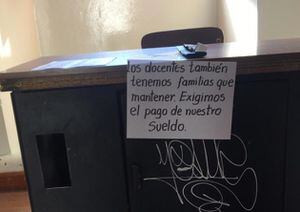 Los docentes también
tenemos familias que
mantener. Exigimos
el pago de nuestro
Sueldo.